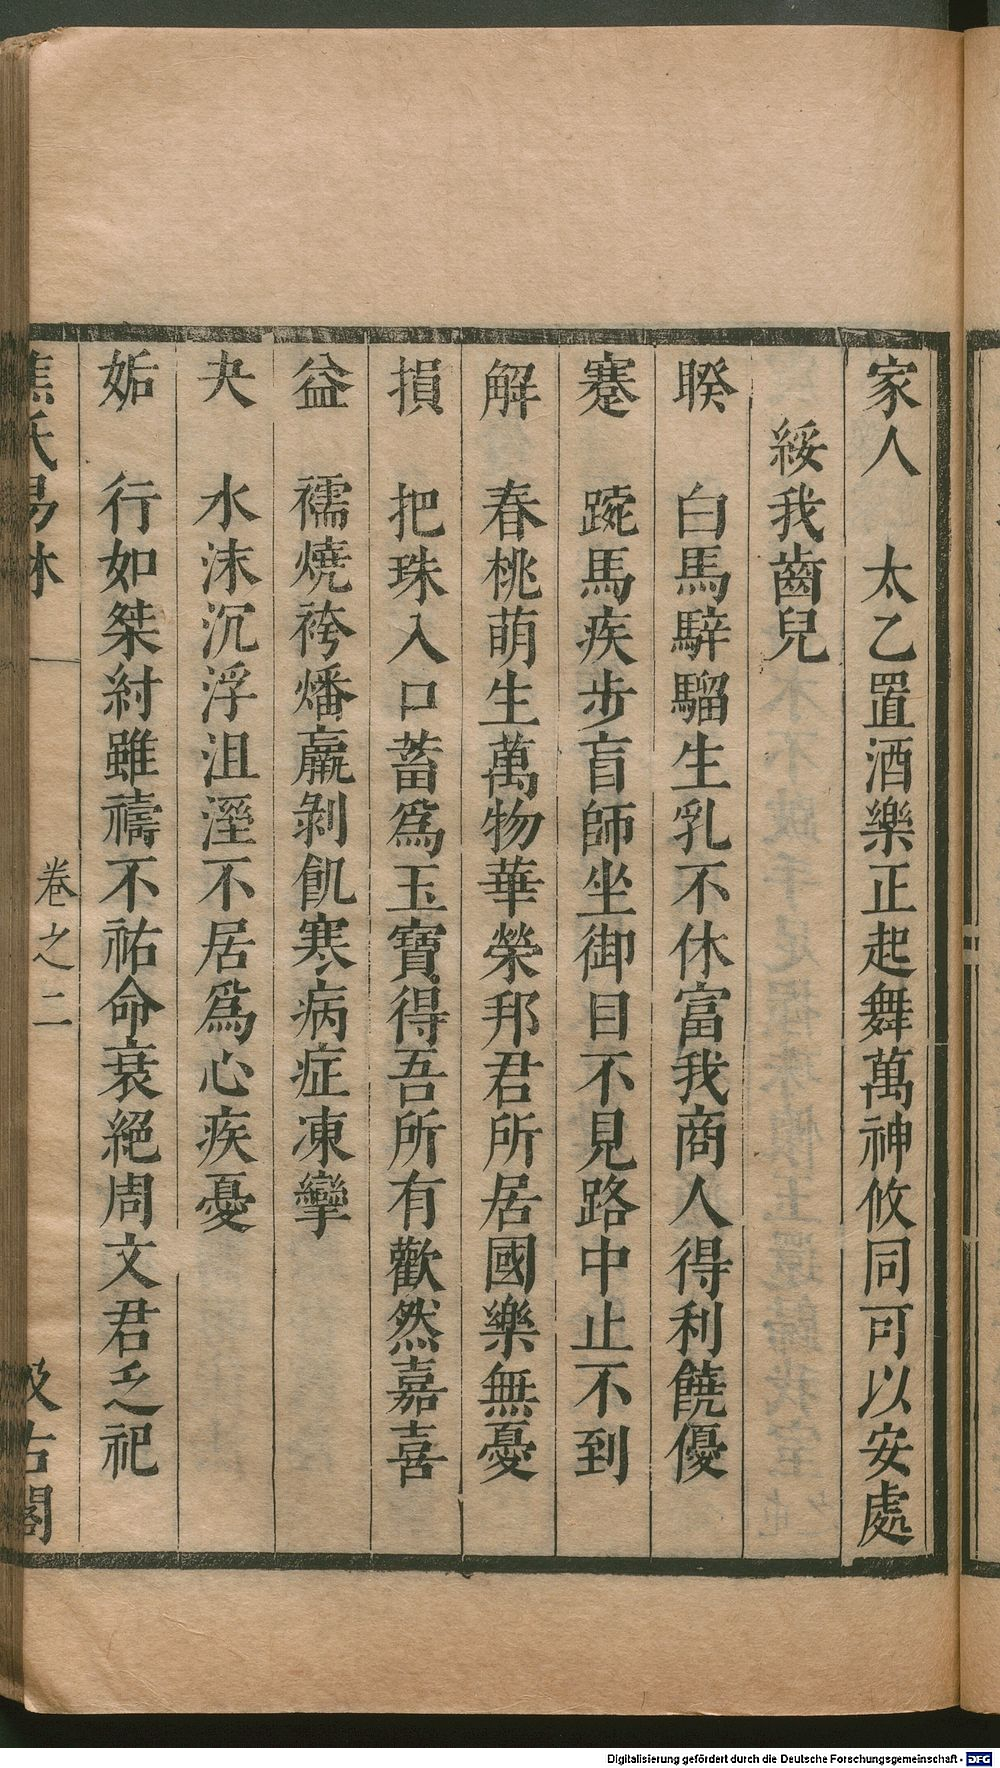 家人　太乙置酒樂正起舞萬神攸同可以安處
綏我齒兒
睽　白馬騂騮生乳不休富我商人得利饒優
蹇　踠馬疾步盲師坐御目不見路中止不到
解　春桃萌生萬物華榮邦君所居國樂無憂
損　把珠入口蓄爲玉寶得吾所有歡然嘉喜
益　襦燒袴燔羸剝飢寒病症凍攣
夬　水沫沉浮沮溼不居爲心疾憂
姤　行如桀紂雖禱不祐命衰絕周文君乏祀
焦氏易林　卷之二　汲古閣
Digitalisierung gefördert durch die Deutsche Forschungsgemeinschaft - DFG